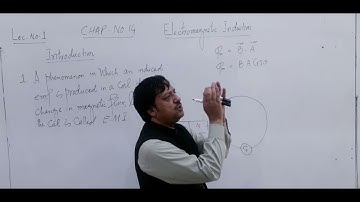 Lec. No: 1 CHAP NO 14 Electromagnetic Induction
Introduction
Φ = B . A
Φ = B A Cosθ
1. A phenomenon in Which an induced
emf is produced in a Coil
change in magnetic flux
the Coil is Called E.M.I
G